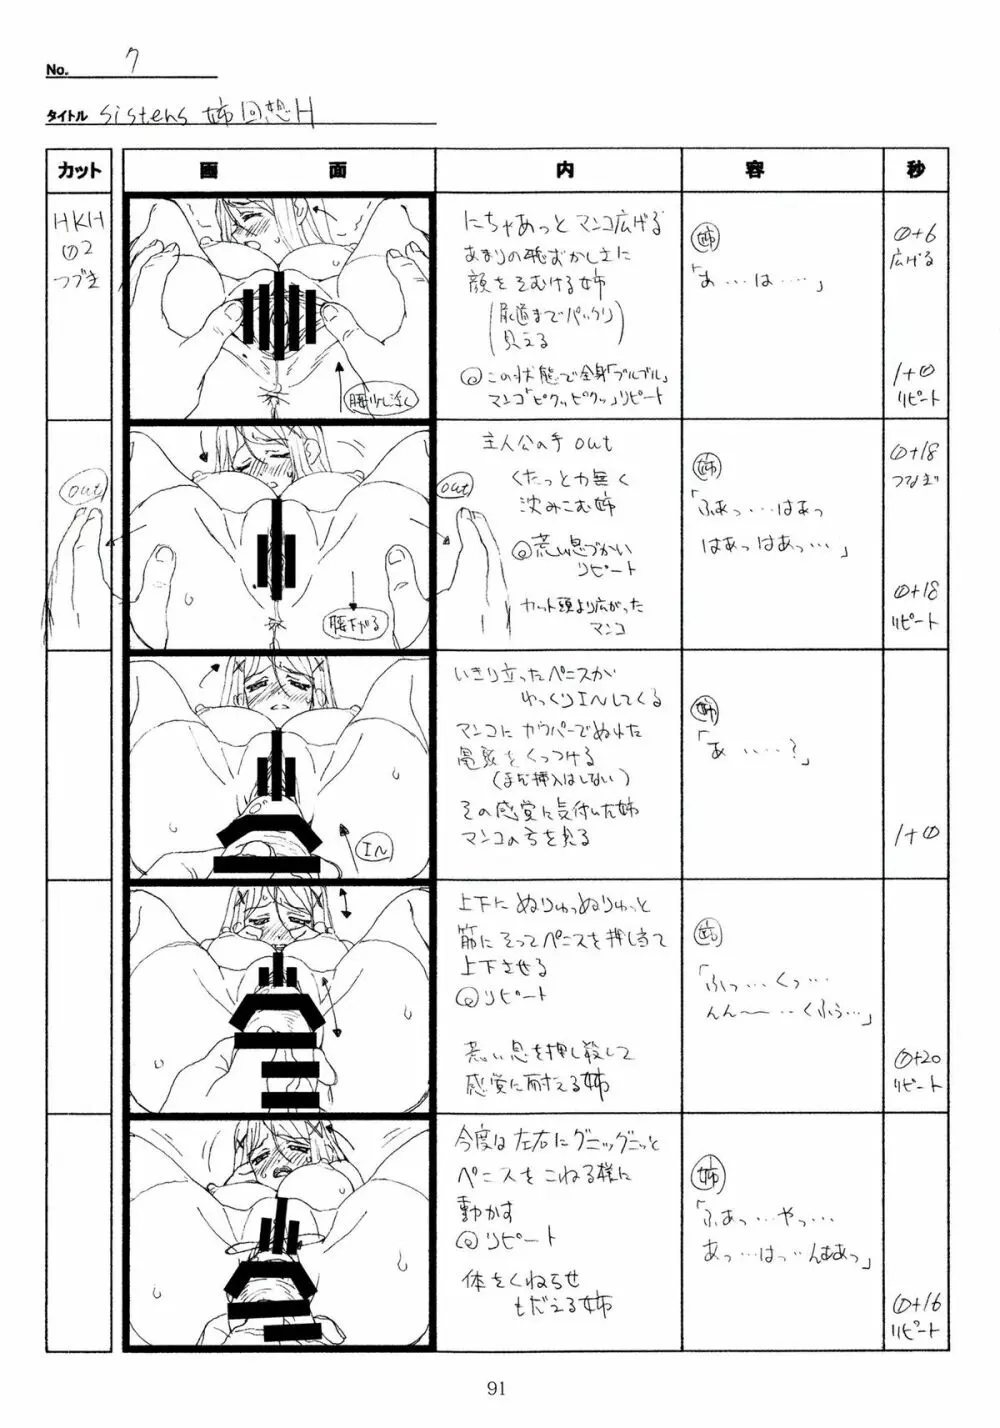 No. 7
タイトル sisters 姉回想H
カット 画面 内容 秒
HKH
①2
つづき
腰少し浮く
にちゃあっとマンコ広げる
あまりの恥ずかしさに
顔をそむける姉
(尿道までパックリ
見える)
◎この状態で全身「ブルブル」
マンコ「ピクッピクッ」リピート
姉
「あ…は……」
0+6
広げる
1+0
リピート
out
out
腰下がる
主人公の手out
くたっと力無く
沈みこむ姉
◎荒い息づかい
リピート
カット頭より広がった
マンコ
姉
「ふあっ…はあっ
はあっはあっ…」
0+18
つなぎ
0+18
リピート
IN
いきり立ったペニスが
ゆっくりINしてくる
マンコにカウパーでぬれた
亀頭をくっつける
(まだ挿入はしない)
その感覚に気付いた姉
マンコの方を見る
姉
「あ……?」
1+0
上下にぬりゅっぬりゅっと
筋にそってペニスを押し当て
上下させる
◎リピート
荒い息を押し殺して
感覚に耐える姉
姉
「ふっ…くっ…
んん〜‥くふぅ…」
0+20
リピート
今度は左右にグニッグニッと
ペニスをこねる様に
動かす
◎リピート
体をくねらせ
もだえる姉
姉
「ふあっ…やっ…
あっ…はっ…んああっ」
0+16
リピート
91